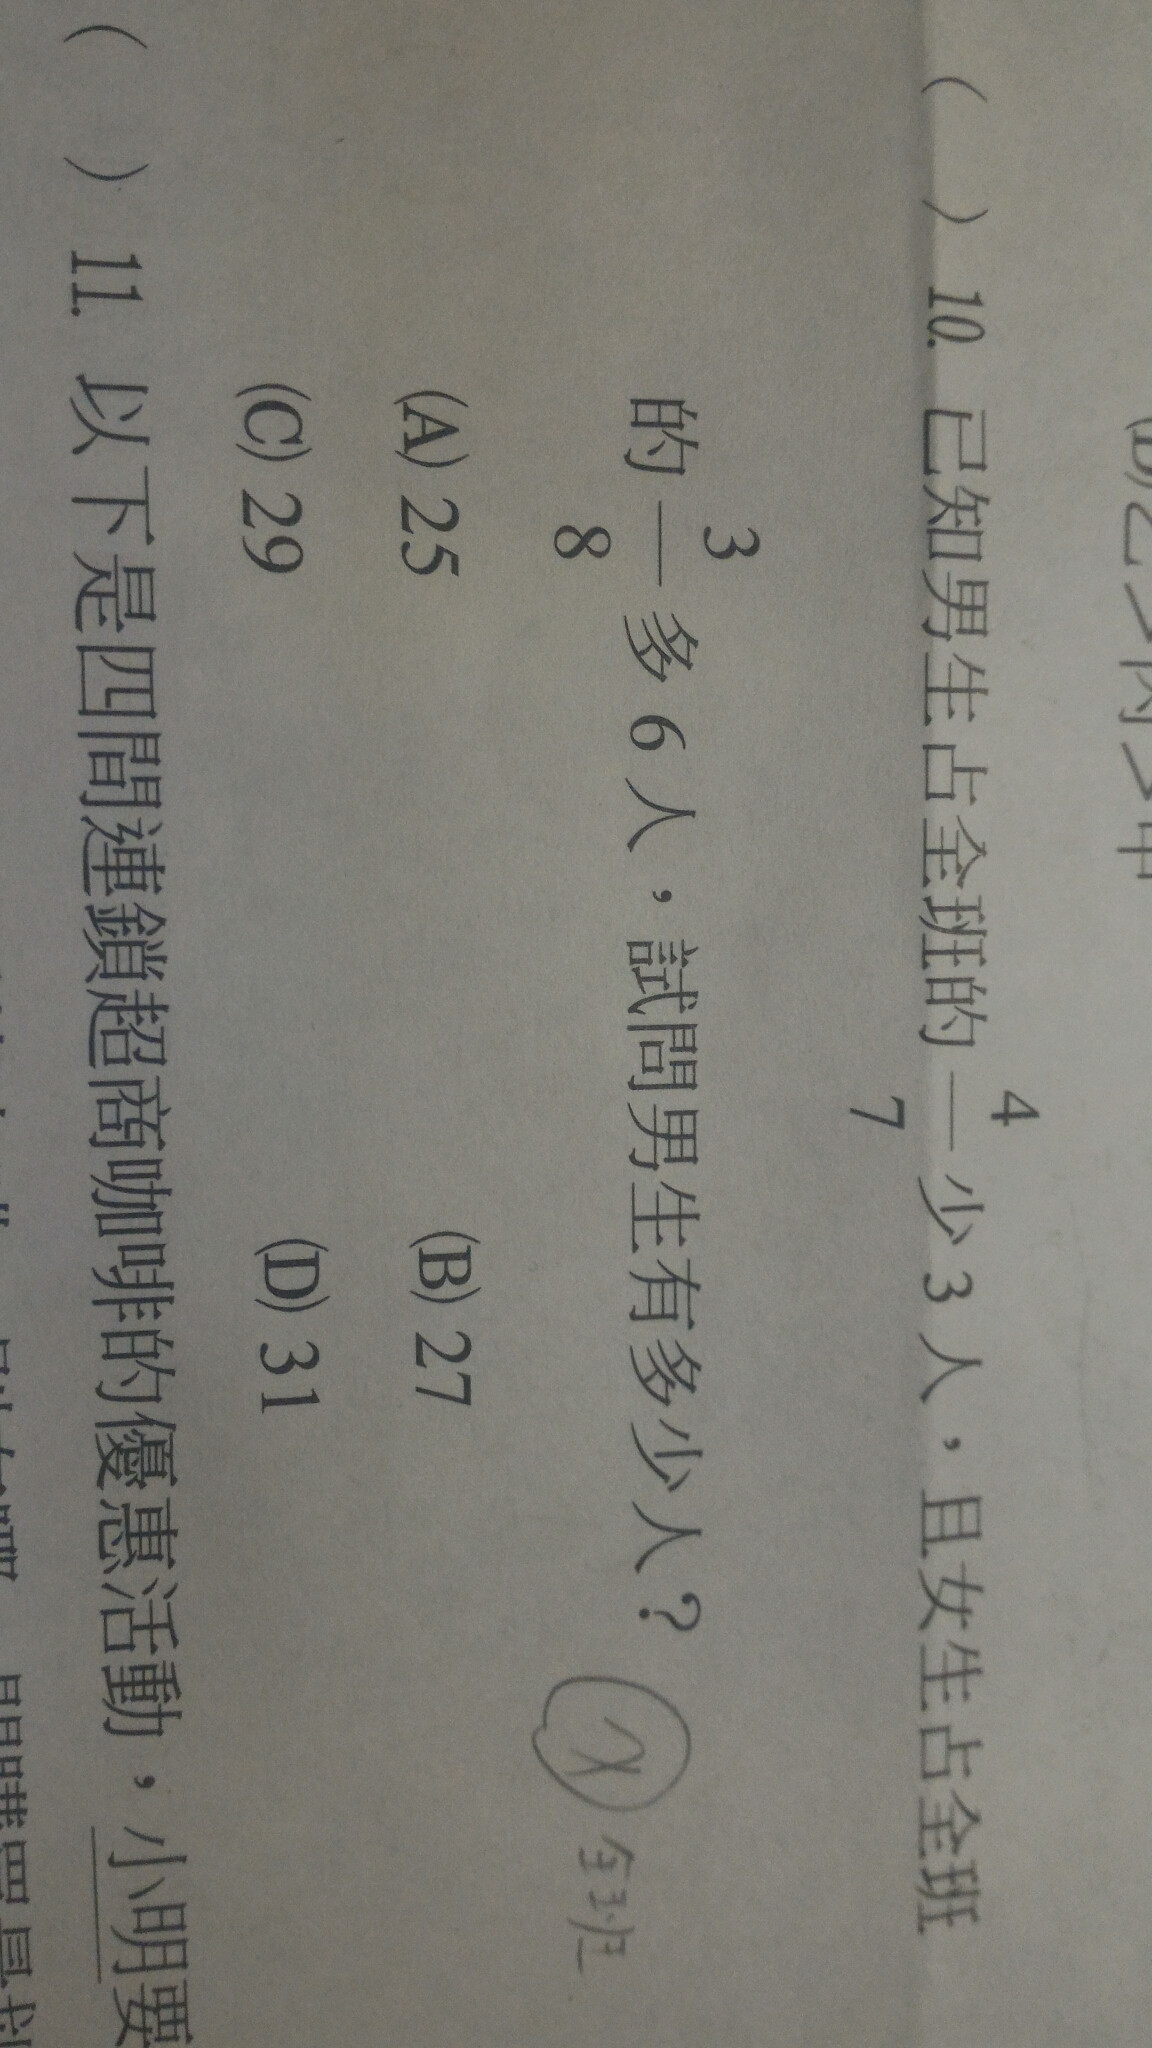 ( ) 10. 已知男生占全班的 4/7 少 3 人，且女生占全班
的 3/8 多 6 人，試問男生有多少人？ x 全班
(A) 25 (B) 27
(C) 29 (D) 31
( ) 11. 以下是四間連鎖超商咖啡的優惠活動，小明要